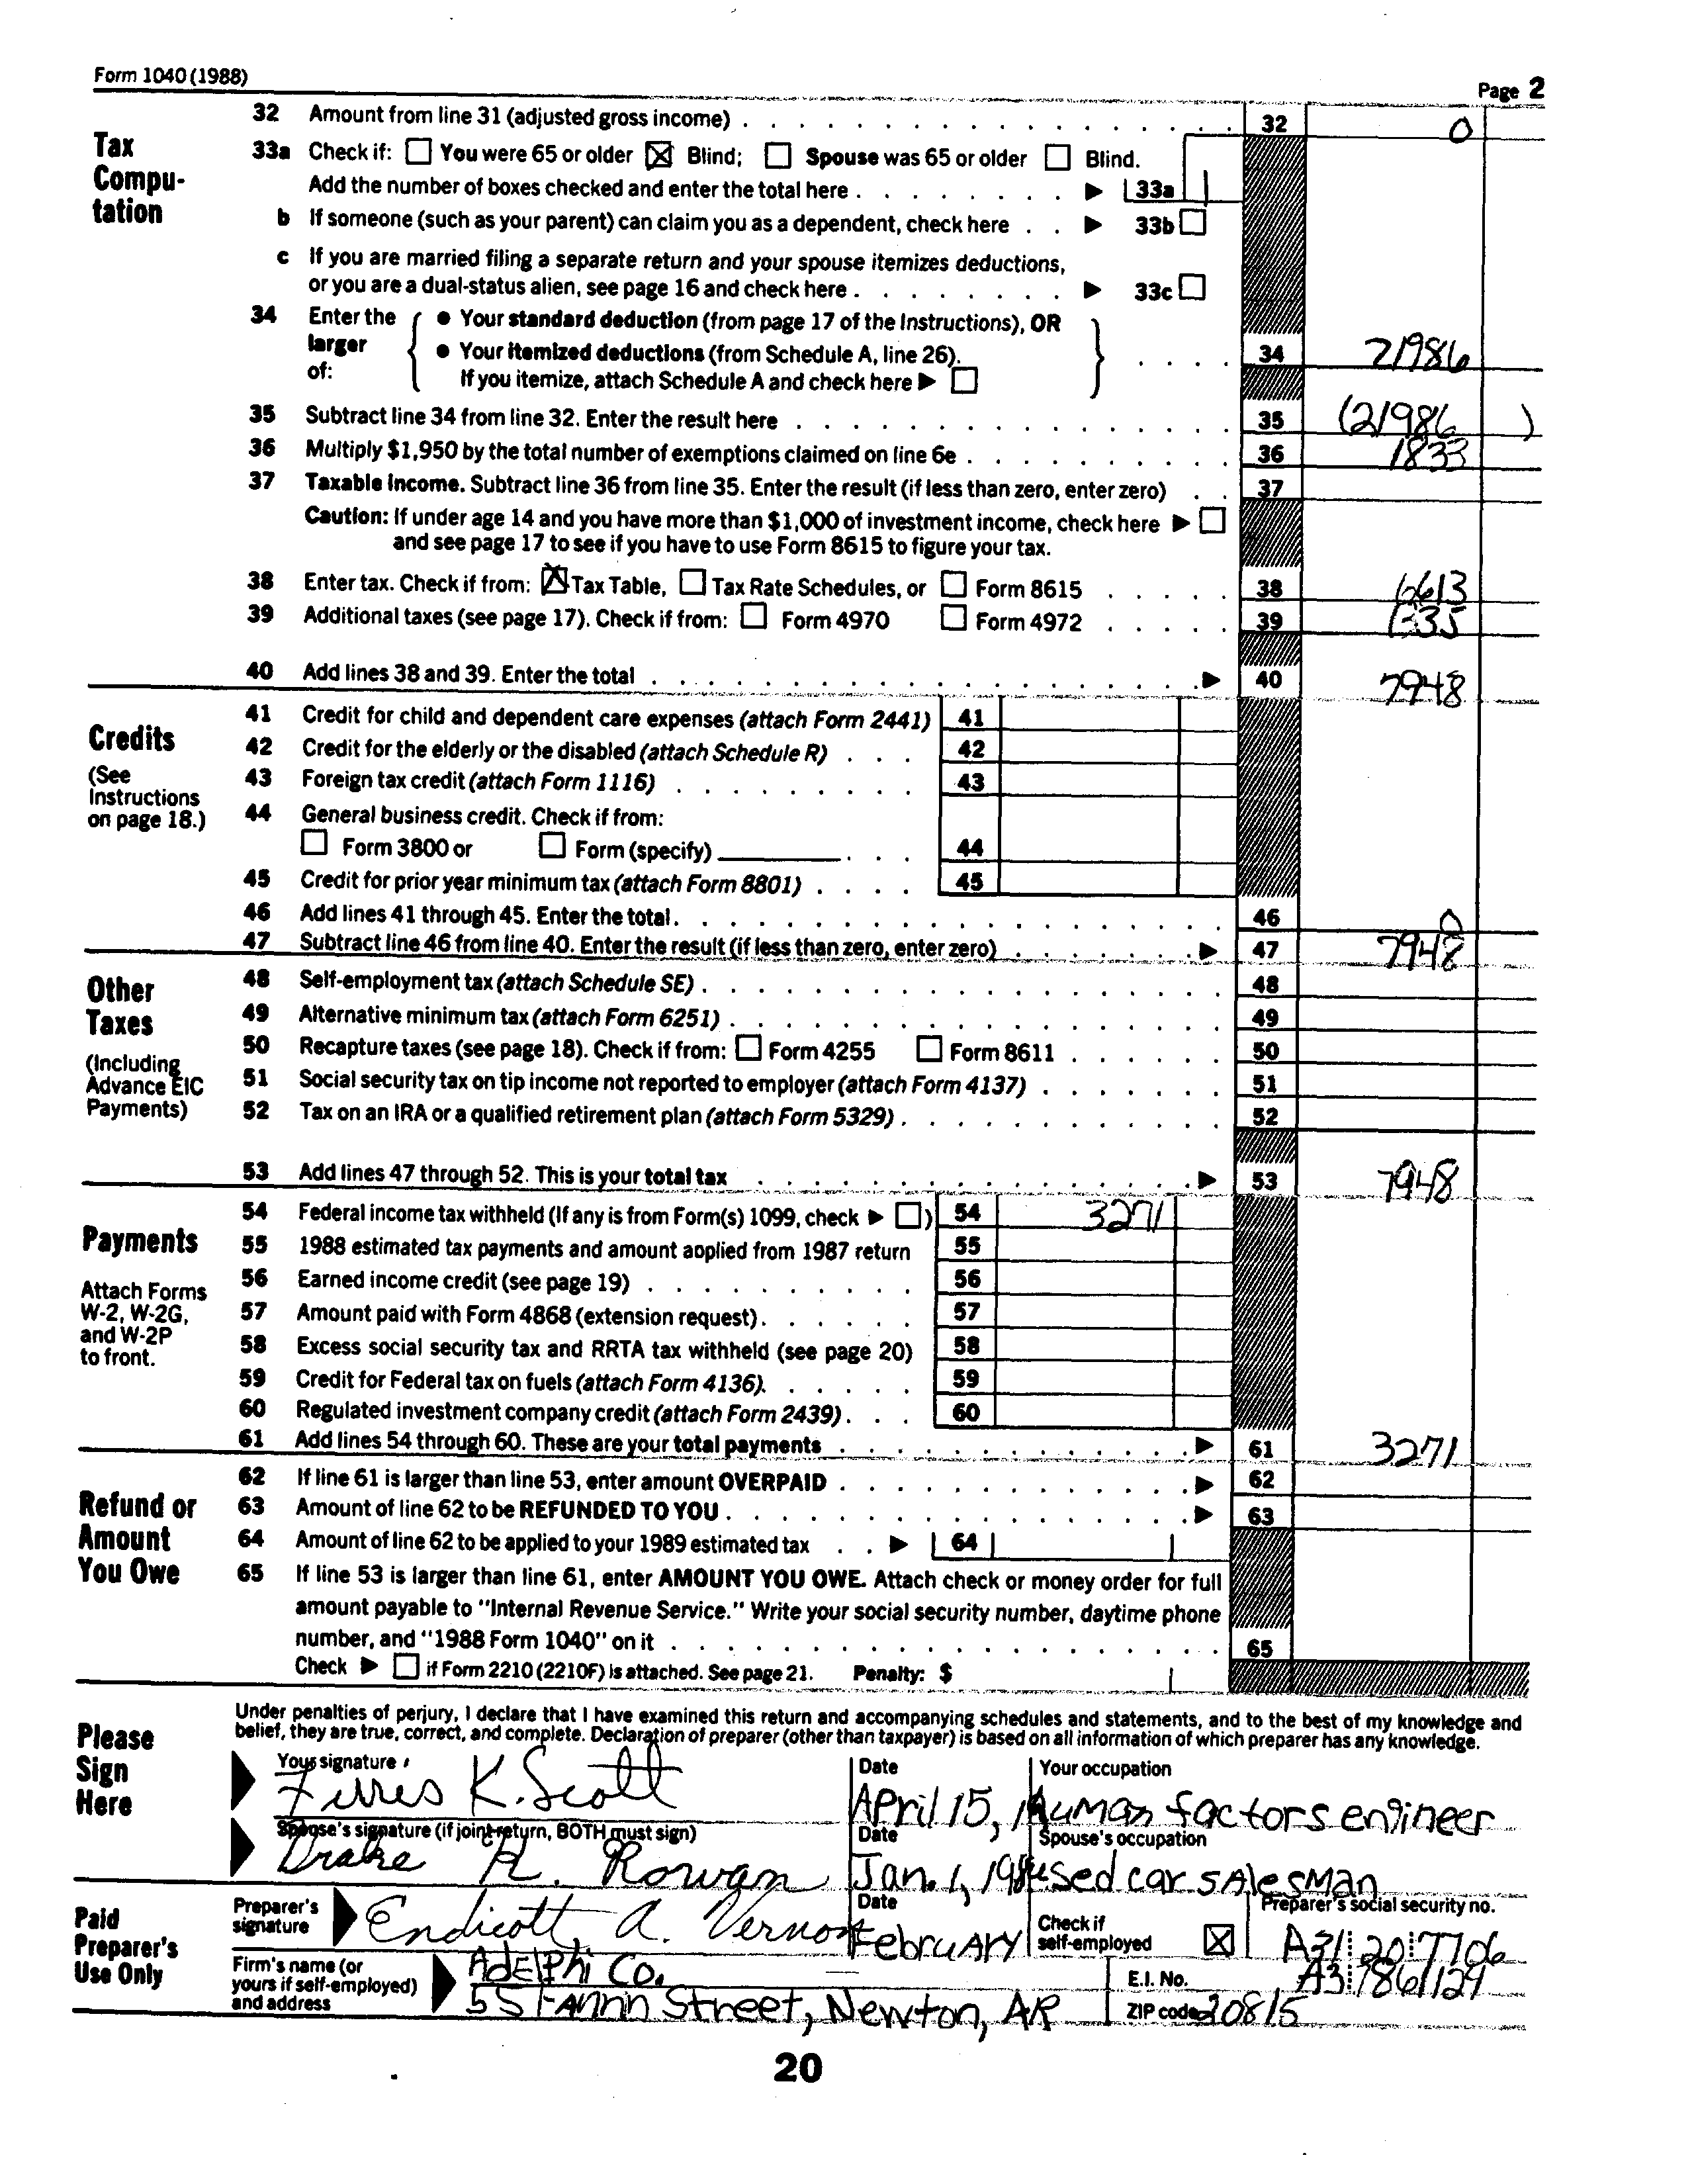 Form 1040 (1988) Page 2
Tax Compu- tation
32 Amount from line 31 (adjusted gross income) 32 0
33a Check if: You were 65 or older Blind; Spouse was 65 or older Blind.
Add the number of boxes checked and enter the total here 33a 1
b If someone (such as your parent) can claim you as a dependent, check here 33b
c If you are married filing a separate return and your spouse itemizes deductions,
or you are a dual-status alien, see page 16 and check here 33c
34 Enter the larger of:
• Your standard deduction (from page 17 of the Instructions), OR
• Your itemized deductions (from Schedule A, line 26).
If you itemize, attach Schedule A and check here
34 21986
35 Subtract line 34 from line 32. Enter the result here 35 (21986 )
36 Multiply $1,950 by the total number of exemptions claimed on line 6e 36 1833
37 Taxable income. Subtract line 36 from line 35. Enter the result (if less than zero, enter zero) 37
Caution: If under age 14 and you have more than $1,000 of investment income, check here
and see page 17 to see if you have to use Form 8615 to figure your tax.
38 Enter tax. Check if from: Tax Table, Tax Rate Schedules, or Form 8615 38 6613
39 Additional taxes (see page 17). Check if from: Form 4970 Form 4972 39 1335
40 Add lines 38 and 39. Enter the total 40 7948
Credits
(See Instructions on page 18.)
41 Credit for child and dependent care expenses (attach Form 2441) 41
42 Credit for the elderly or the disabled (attach Schedule R) 42
43 Foreign tax credit (attach Form 1116) 43
44 General business credit. Check if from:
Form 3800 or Form (specify) 44
45 Credit for prior year minimum tax (attach Form 8801) 45
46 Add lines 41 through 45. Enter the total. 46 0
47 Subtract line 46 from line 40. Enter the result (if less than zero, enter zero) 47 7948
Other Taxes
(Including Advance EIC Payments)
48 Self-employment tax (attach Schedule SE) 48
49 Alternative minimum tax (attach Form 6251) 49
50 Recapture taxes (see page 18). Check if from: Form 4255 Form 8611 50
51 Social security tax on tip income not reported to employer (attach Form 4137) 51
52 Tax on an IRA or a qualified retirement plan (attach Form 5329) 52
53 Add lines 47 through 52. This is your total tax 53 7948
Payments
Attach Forms W-2, W-2G, and W-2P to front.
54 Federal income tax withheld (If any is from Form(s) 1099, check ) 54 3271
55 1988 estimated tax payments and amount applied from 1987 return 55
56 Earned income credit (see page 19) 56
57 Amount paid with Form 4868 (extension request) 57
58 Excess social security tax and RRTA tax withheld (see page 20) 58
59 Credit for Federal tax on fuels (attach Form 4136) 59
60 Regulated investment company credit (attach Form 2439) 60
61 Add lines 54 through 60. These are your total payments 61 3271
Refund or Amount You Owe
62 If line 61 is larger than line 53, enter amount OVERPAID 62
63 Amount of line 62 to be REFUNDED TO YOU 63
64 Amount of line 62 to be applied to your 1989 estimated tax 64
65 If line 53 is larger than line 61, enter AMOUNT YOU OWE. Attach check or money order for full
amount payable to "Internal Revenue Service." Write your social security number, daytime phone
number, and "1988 Form 1040" on it 65
Check if Form 2210 (2210F) is attached. See page 21. Penalty: $
Please Sign Here
Under penalties of perjury, I declare that I have examined this return and accompanying schedules and statements, and to the best of my knowledge and
belief, they are true, correct, and complete. Declaration of preparer (other than taxpayer) is based on all information of which preparer has any knowledge.
Your signature Date Your occupation
Ferres K. Scott April 15, 1 Human factors engineer
Spouse's signature (if joint return, BOTH must sign) Date Spouse's occupation
Drake R. Rowan Jan. 1, 19 used car salesman
Paid Preparer's Use Only
Preparer's signature Date Check if self-employed Preparer's social security no.
Endicott A. Vernon February A31 20 7706
Firm's name (or yours if self-employed) and address
Adelphi Co. E.I. No. A3 7861129
Street, Newton, AR ZIP code 20815
20